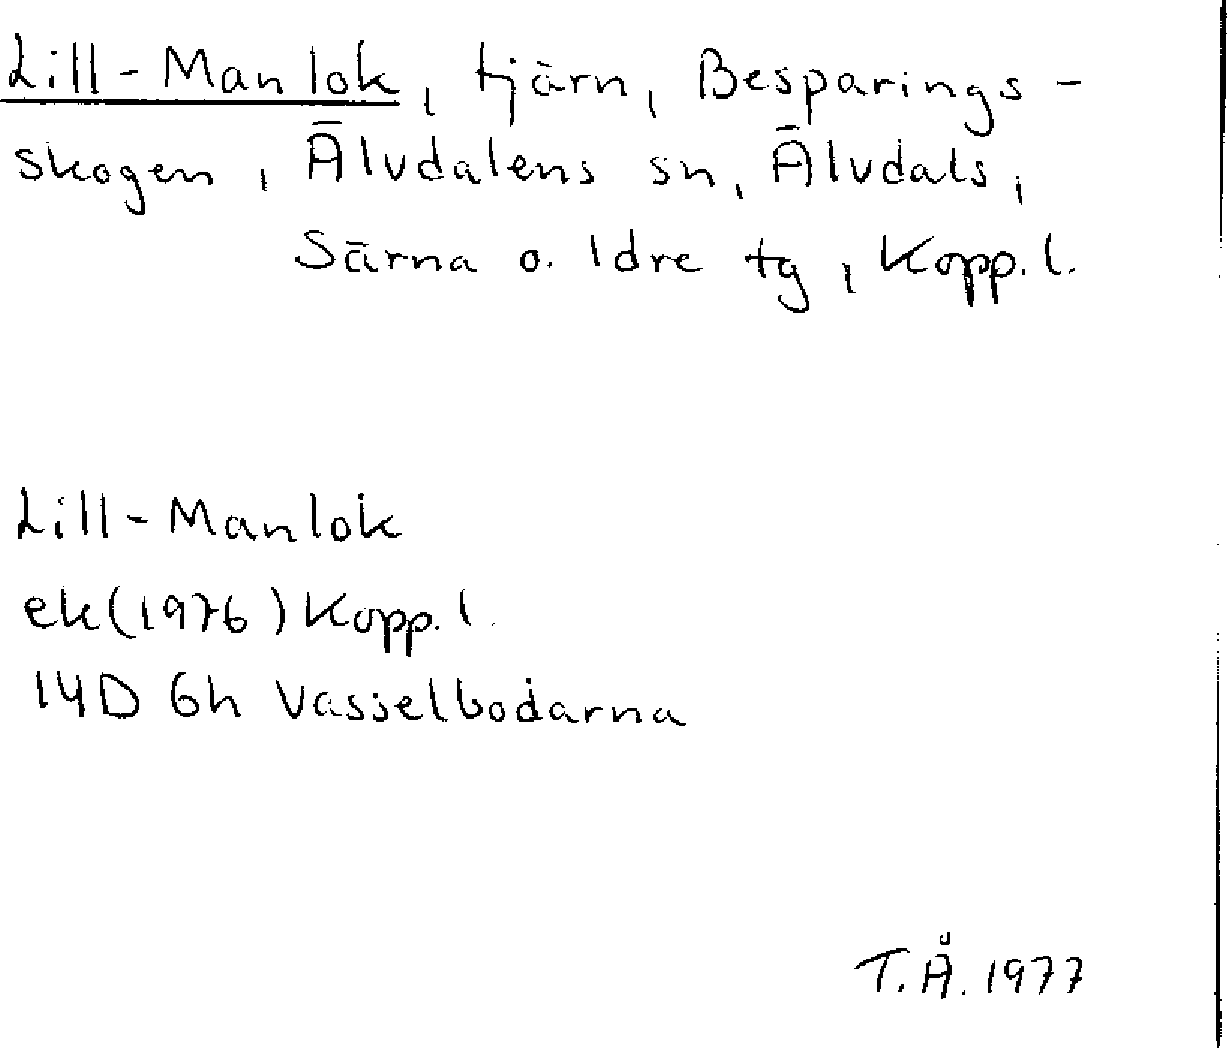 Lill-Manlok, tjärn, Besparings-
skogen, Älvdalens sn, Älvdals,
Särna o. Idre tg, Kopp. l.
Lill-Manlok
ek(1976) Kopp. l.
14D 6h Vasselbodarna
T.Å. 1977